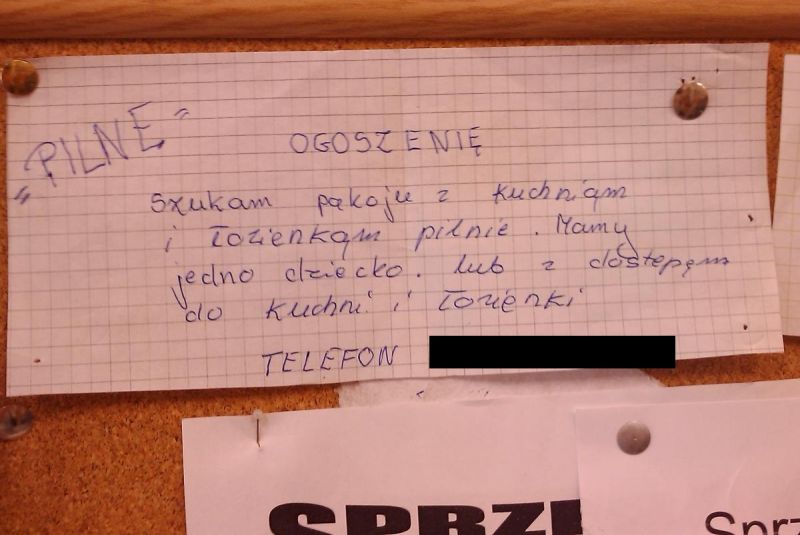 „PILNE"
OGOSZENIĘ
Szukam pąkoju z kuchniąm
i łozienkąm pilnie. Mamy
jedno dziecko. lub z dostępęm
do kuchni i łozienki
TELEFON
SPRZE
Sprz